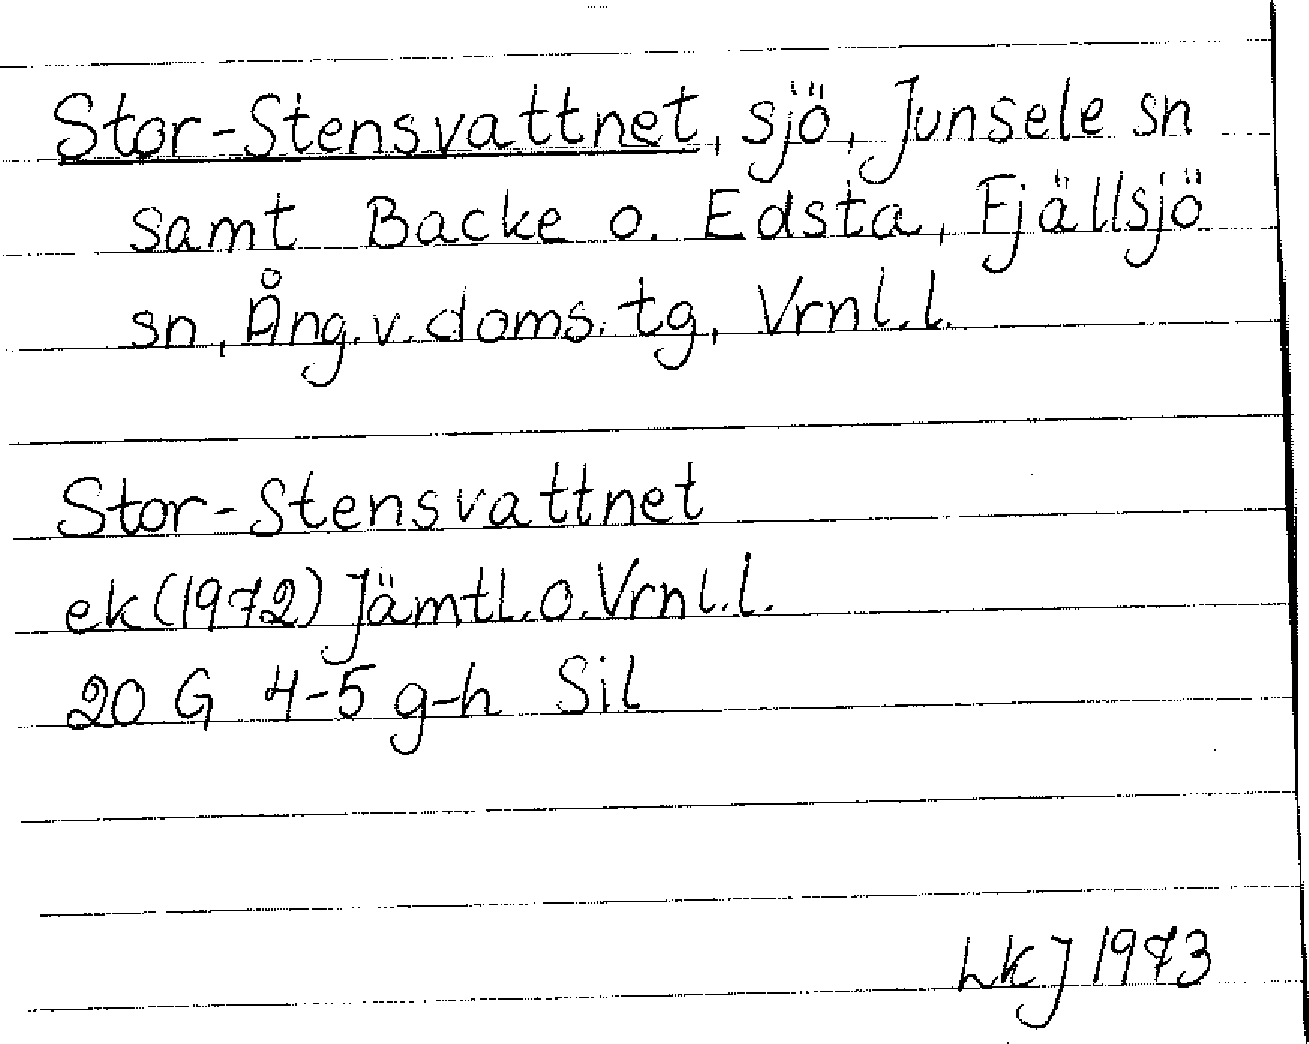 Stor-Stensvattnet, sjö, Junsele sn
samt Backe o. Edsta, Fjällsjö
sn, Ång. v. doms. tg, Vrnl. l.
Stor-Stensvattnet
ek (1972) Jämtl. o. Vrnl. l.
20 G 4-5 g-h Sil
LKJ 1973